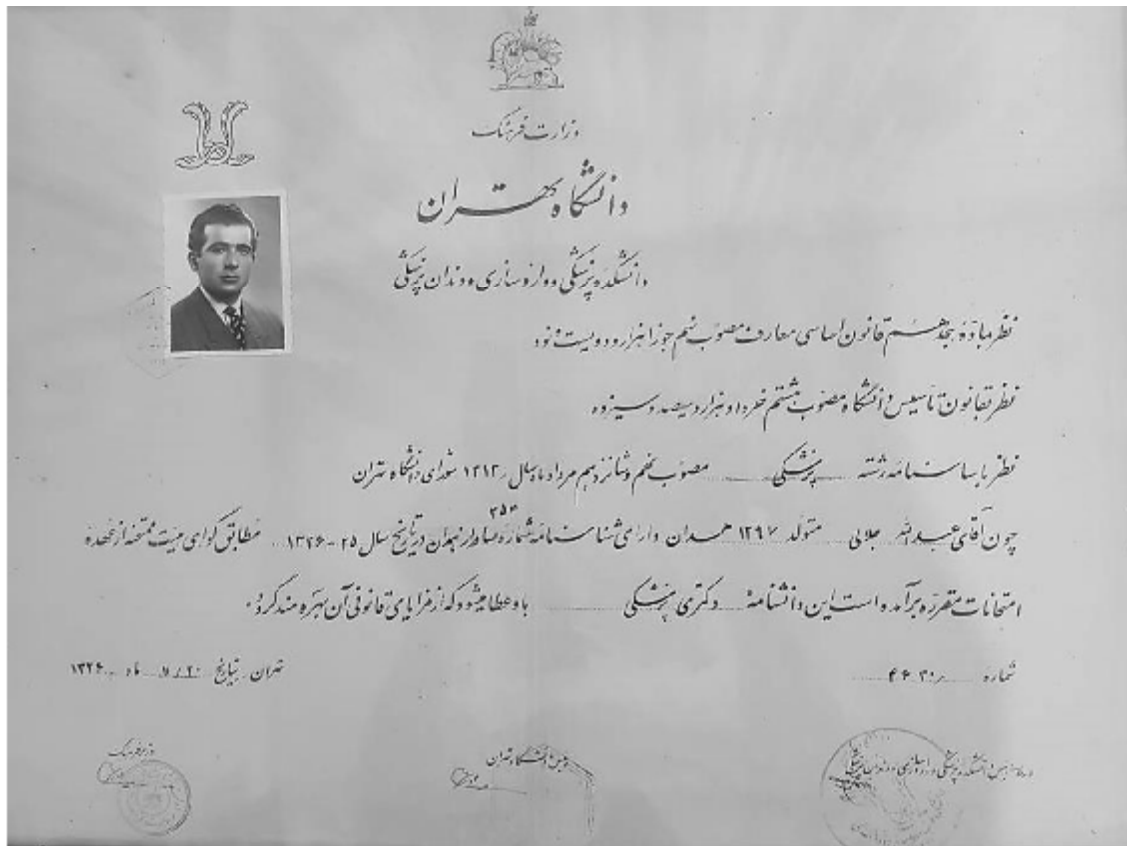 وزارت فرهنگ
دانشگاه تهران
دانشکده پزشکی و داروسازی و دندان پزشکی
نظر بماده هجدهم قانون اساسی معارف مصوب نهم جوزا هزار و دویست و نود
نظر بقانون تأسیس دانشگاه مصوب هشتم خرداد و هزار و سیصد و سیزده
نظر باساسنامه رشته پزشکی مصوب نهم و شانزدهم مرداد ماه سال ۱۳۱۳ شورای دانشگاه تهران
چون آقای عبدالله جلالی متولد ۱۲۹۷ همدان دارای شناسنامه شماره ۲۵۳ صادر از همدان در تاریخ سال ۲۵-۱۳۲۶ مطابق گواهی هیئت ممتحنه از عهده
امتحانات مقرره برآمده است این دانشنامه دکتری پزشکی باو عطا میشود که از مزایای قانونی آن بهره مند گردد.
شماره
تهران بتاریخ ماه ۱۳۲۶
رئیس دانشکده پزشکی و داروسازی و دندان پزشکی
رئیس دانشگاه تهران
وزیر فرهنگ